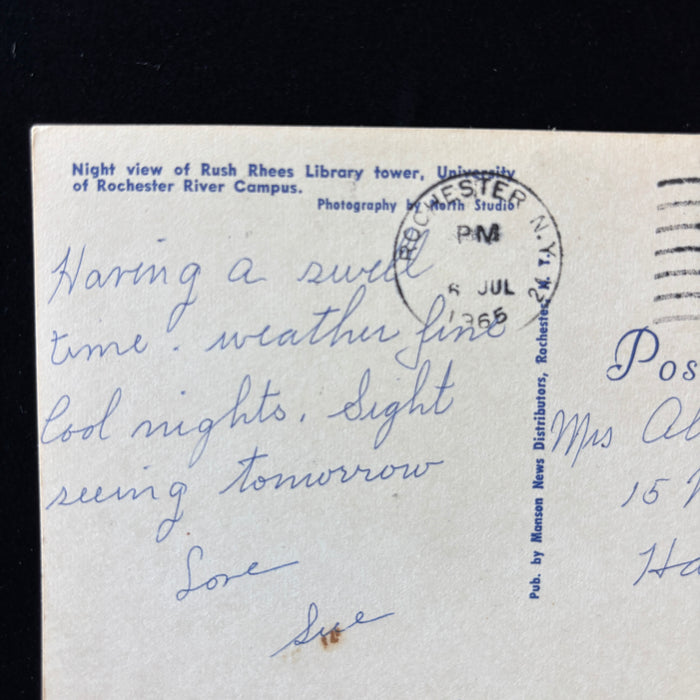 Night view of Rush Rhees Library tower, University
of Rochester River Campus.
Photography by North Studio
ROCHESTER N.Y.
PM
6 JUL
1965
Having a swell
time. weather fine
Cool nights. Sight
seeing tomorrow
Love
Sue
Pub. by Manson News Distributors, Rochester, N. Y.
Pos
Mrs Al
15
Ha